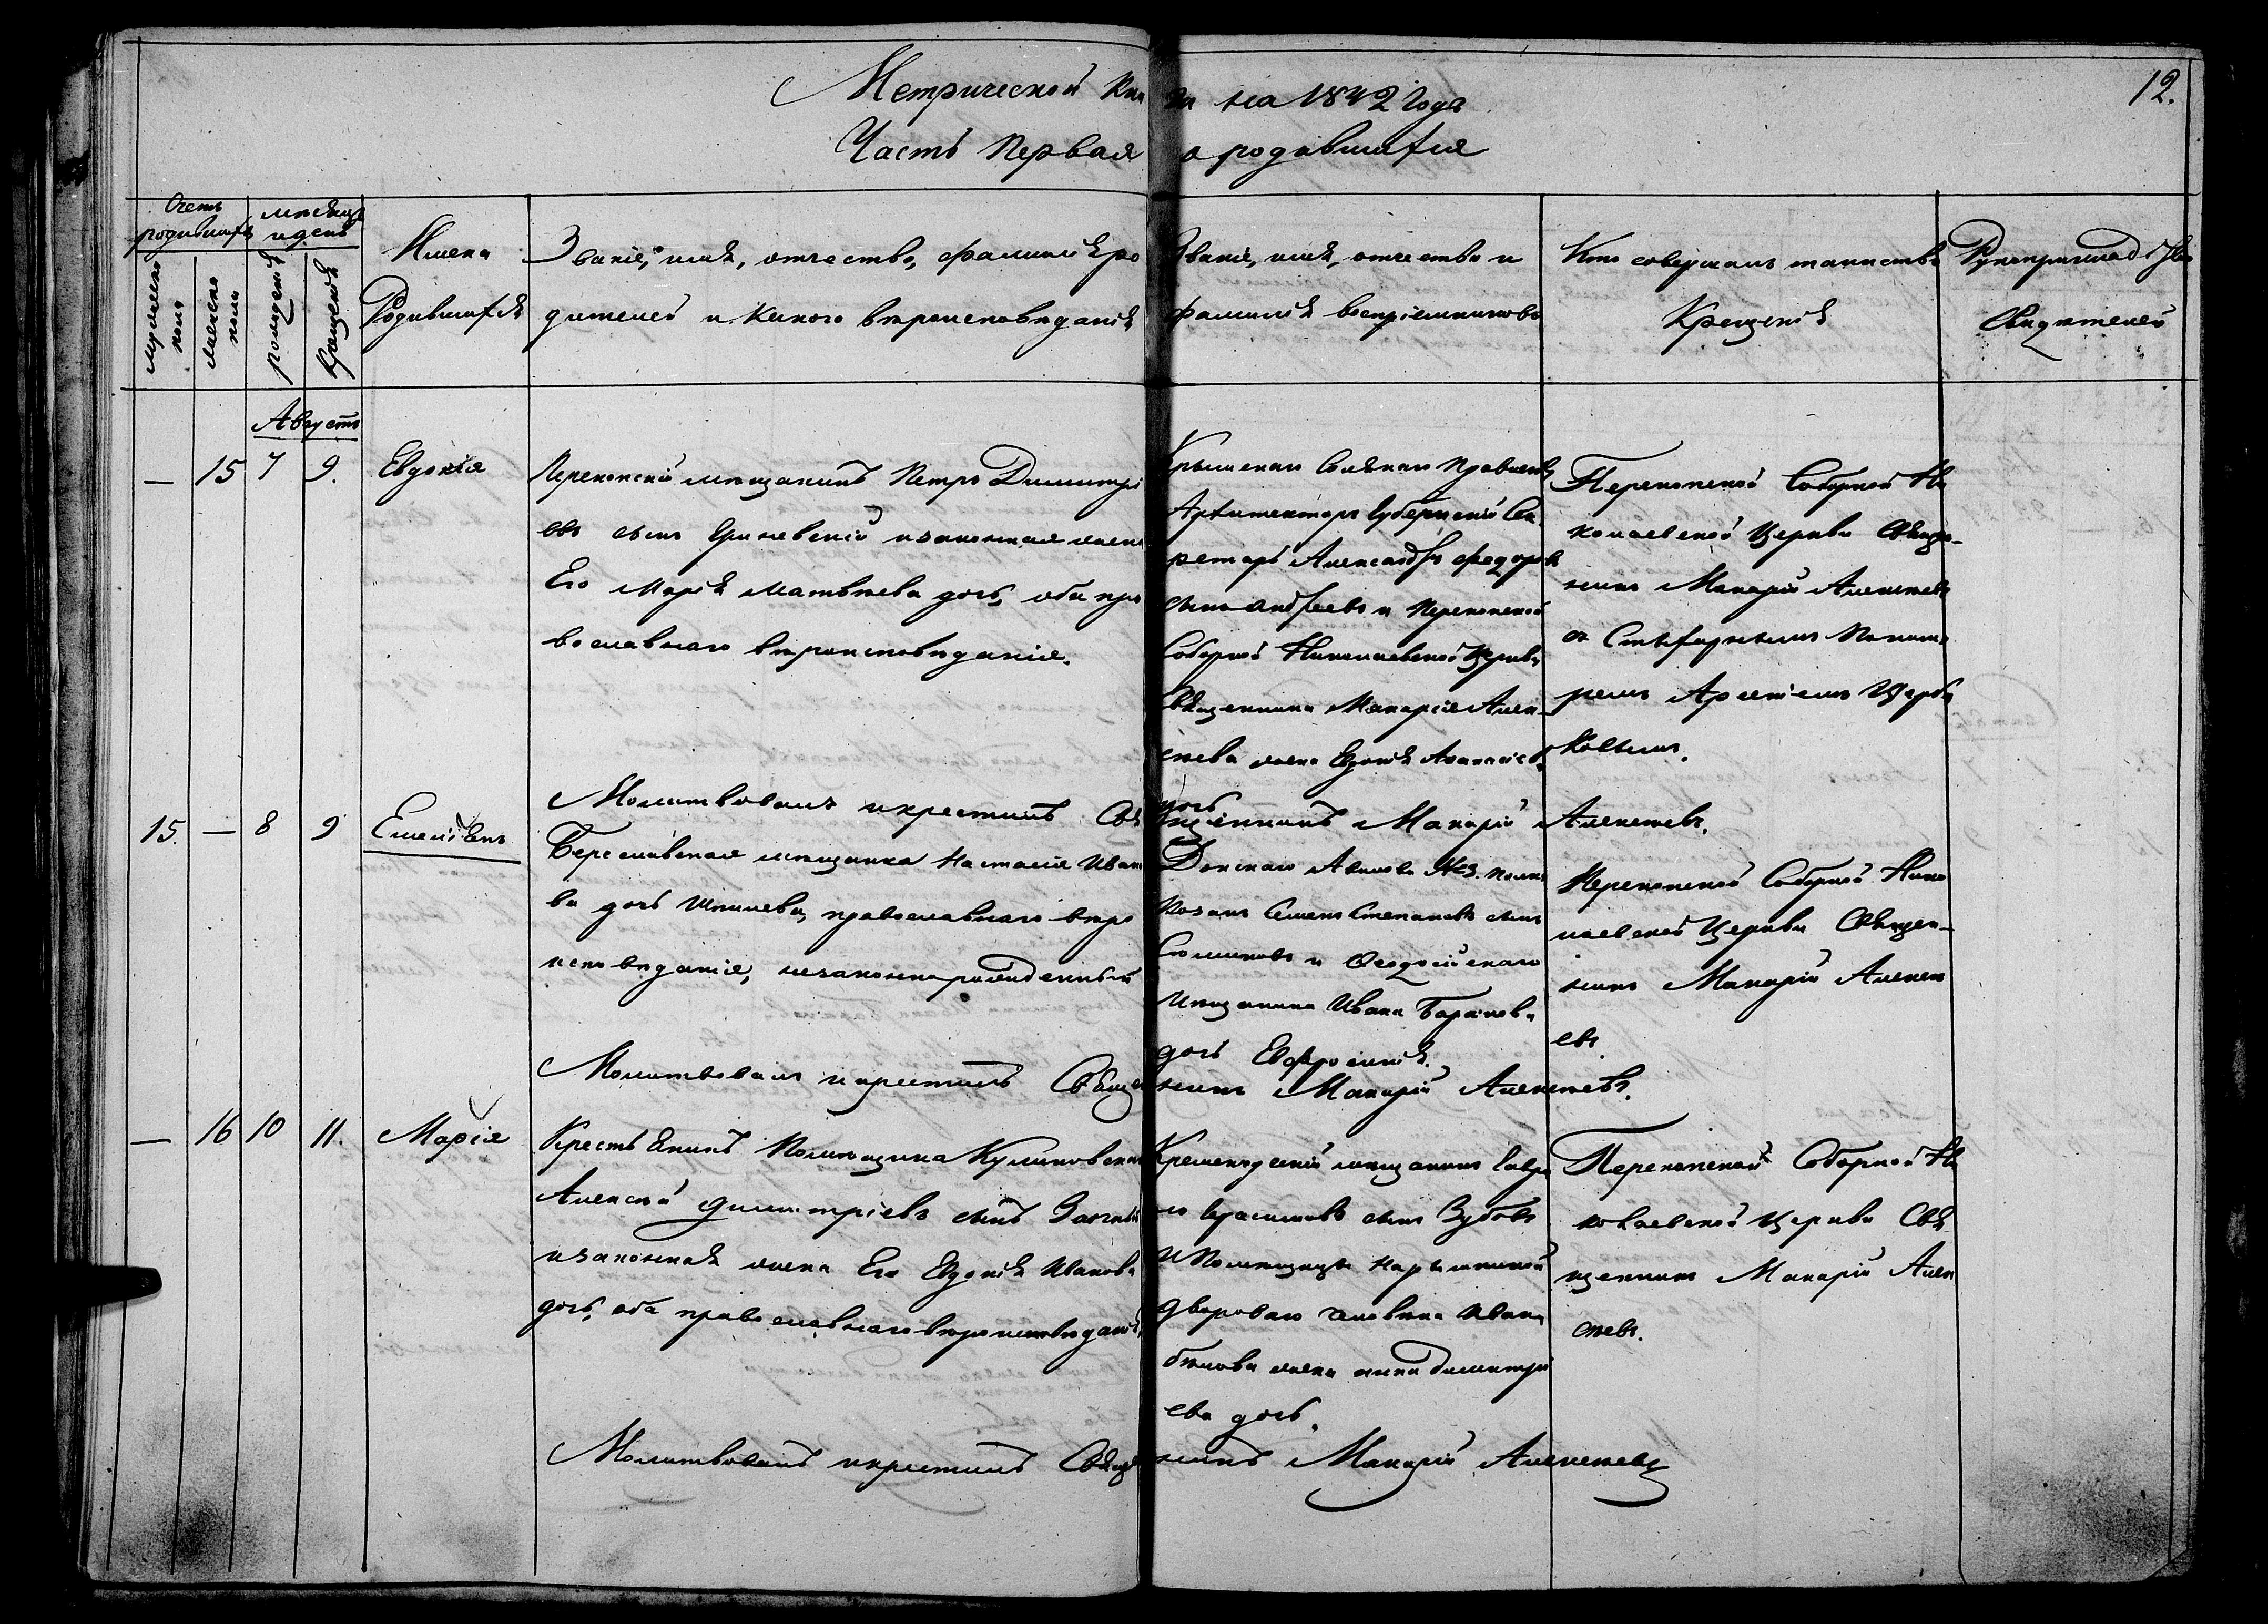 Метрической Кни ги на 1842 Года
12.
Часть Первая о родившихся
Счетъ родившихъ
мѣсяцъ и день
мужеска пола
женска пола
рожденія
крещенія
Имена
Родившихся
Званіе, имя, отчество, фамилія ро
дителей и какого вѣроисповѣданія
Званіе, имя, отчество и
фамилія воспріемниковъ
Кто совершалъ таинство
Крещенія
Рукоприкладство
Свидѣтелей
Августъ
— 15 7 9. Евдокія
Перекопскій мѣщанинъ Петръ Димитрі
евъ сынъ Гриневскій и законная жена
Его Марія Матвѣева дочь, оба пра
вославнаго вѣроисповѣданія.
Крымскаго Солянаго Правленія
Архитекторъ Губернскій Сек
ретарь Александръ Федоровъ
сынъ Андреевъ и Перекопской
Соборной Николаевской Церкви
Священника Макарія Алек
сѣева жена Евдокія Афанасіев.
дочь
Перекопской Соборной Ни
колаевской Церкви Священ-
никъ Макарій Алексѣевъ
съ Стихарнымъ Понома
ремъ Арсеніемъ Щерба
ковымъ.
Молитвовалъ и крестилъ Свя щенникъ Макарій Алексѣевъ.
15. — 8 9 Емеліянъ
Бериславская мѣщанка Настасія Ивано
ва дочь Шпилева, православнаго вѣро
исповѣданія, незаконнорожденный
Донскаго № 3. полка
Козакъ Семенъ Степановъ сынъ
и Ѳеодосійскаго
мѣщанина Ивана Баранова
дочь Евфросинія.
Перекопской Соборной Нико
лаевской Церкви Священ-
никъ Макарій Алексѣ
евъ.
Молитвовалъ и крестилъ Священ никъ Макарій Алексѣевъ.
— 16 10 11. Марія
Крестьянинъ Помѣщика Куликовскаго
Алексѣй Димитріевъ сынъ
и законная жена Его Евдокія Иванова
дочь, оба православнаго вѣроисповѣданія,
Кременчугскій мѣщанинъ Гаври
ло Герасимовъ сынъ Зубовъ
и Помѣщицы Нарышкиной
двороваго человѣка Ивана
Бѣлова жена Анна Димитрі
ева дочь.
Перекопской Соборной Ни
колаевской Церкви Свя
щенникъ Макарій Алек
сѣевъ.
Молитвовалъ и крестилъ Священ никъ Макарій Алексѣевъ